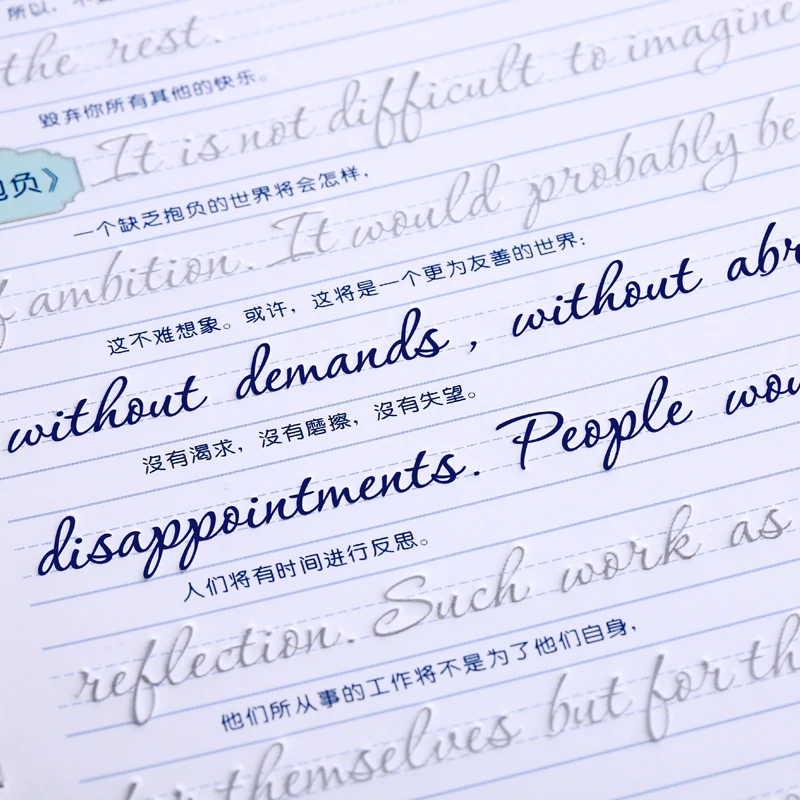 所以，不
the rest.
毁弃你所有其他的快乐。
It is not difficult to imagine
抱负》
一个缺乏抱负的世界将会怎样，
ambition. It would probably be
这不难想象。或许，这将是一个更为友善的世界：
without demands, without abr
沒有渴求，沒有磨擦，沒有失望。
disappointments. People wou
人们将有时间进行反思。
reflection. Such work as
他们所从事的工作将不是为了他们自身，
for themselves but for th